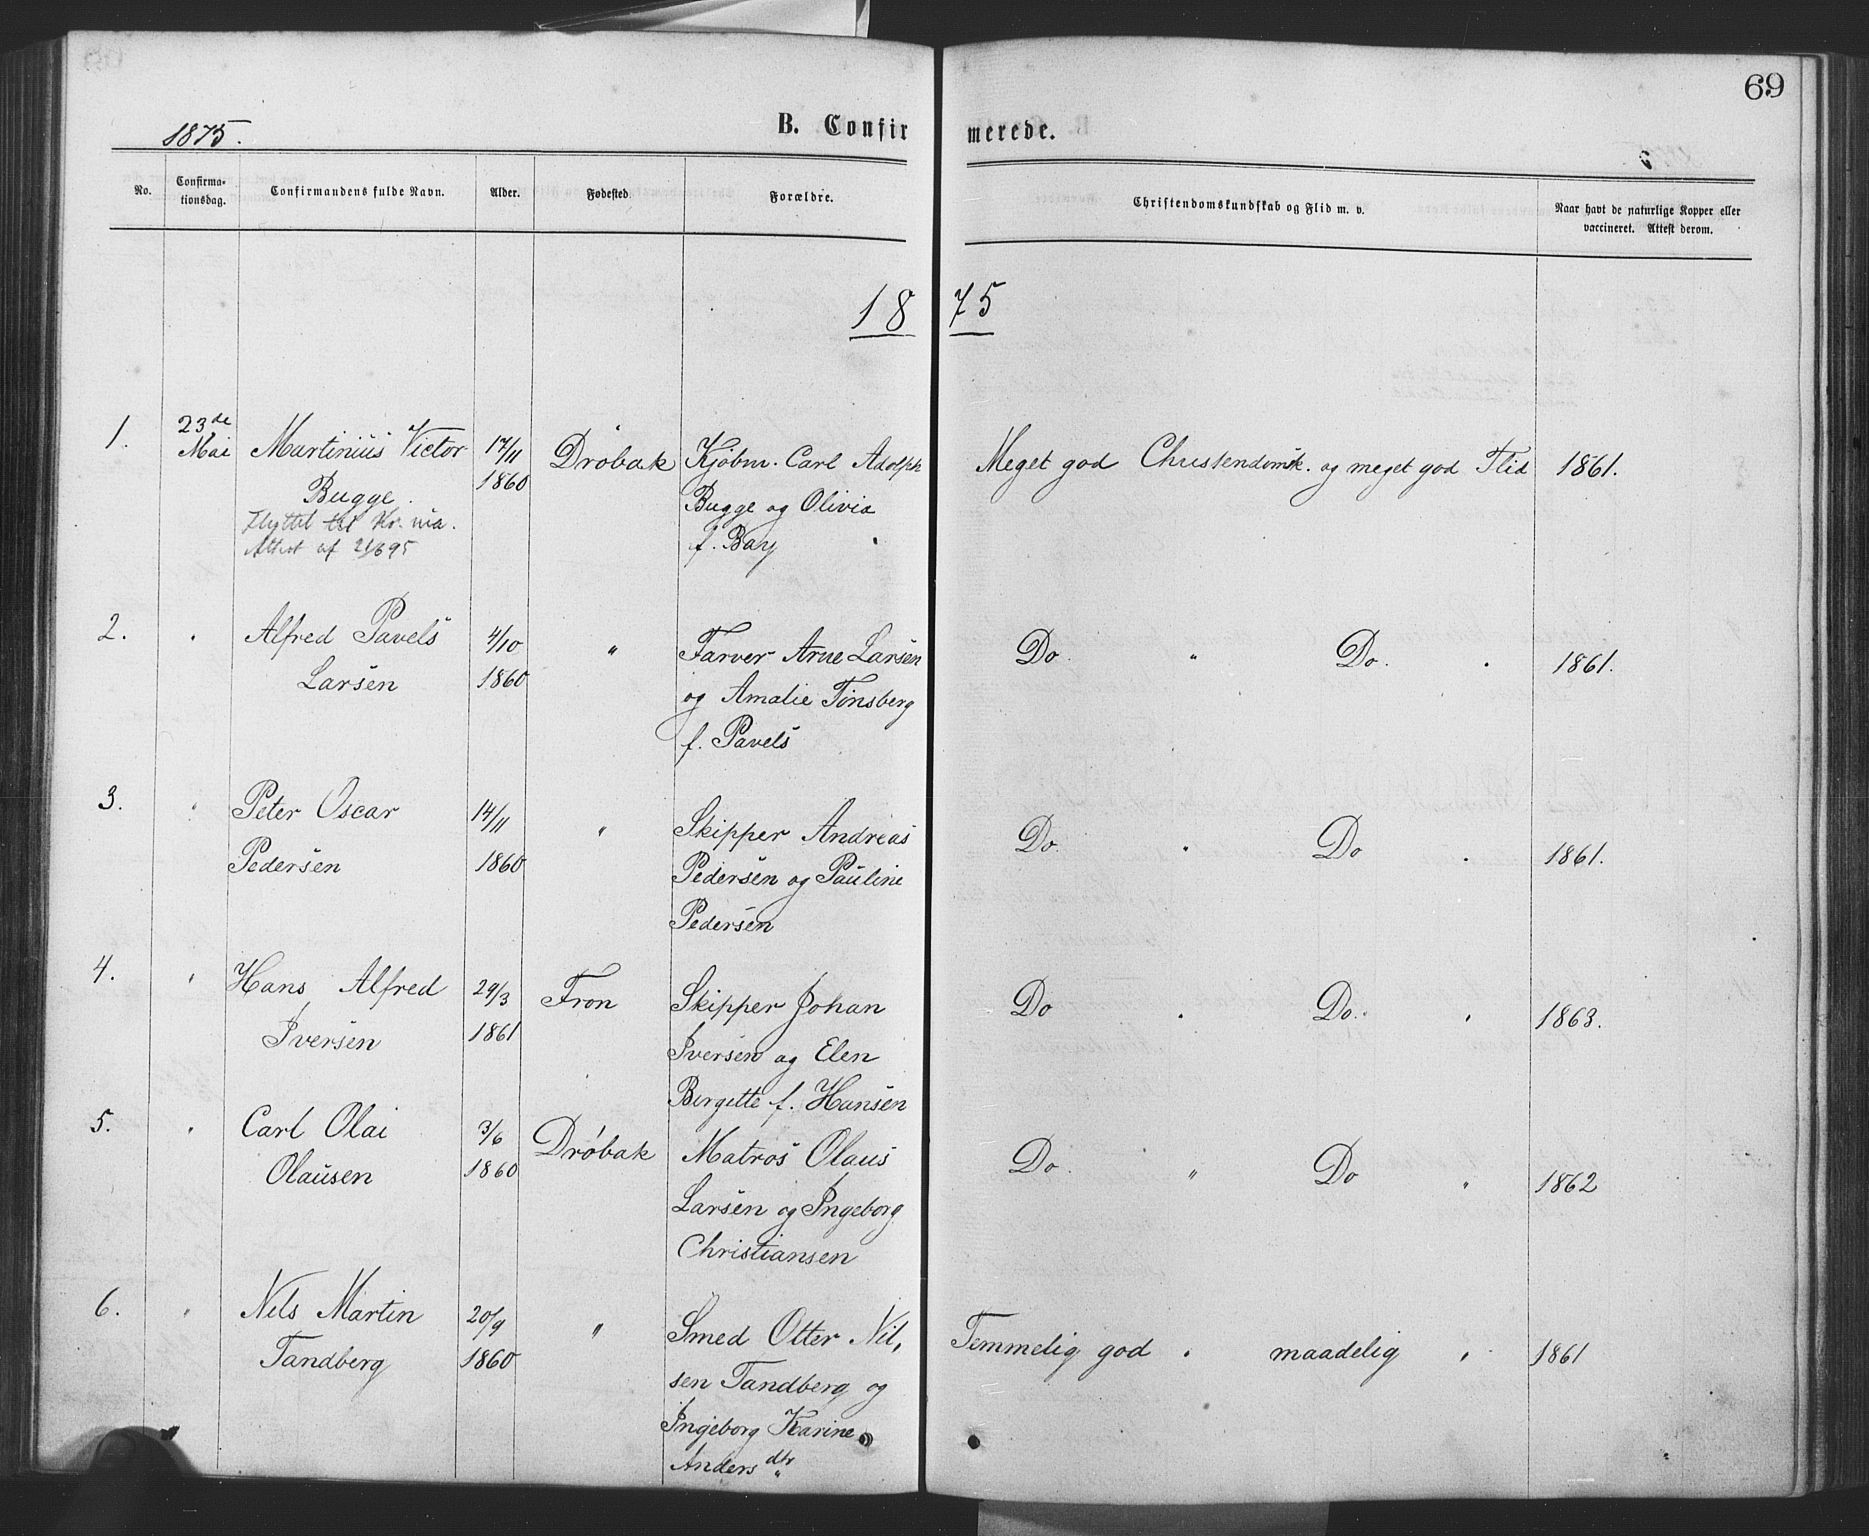 69
1875.
B. Confirmerede.
No.
Confirma-
tionsdag.
Confirmandens fulde Navn.
Alder.
Fødested.
Forældre.
Christendomskundskab og Flid m. v.
Naar havt de naturlige Kopper eller
vaccineret. Attest derom.
1875
1.
23de
Mai
Martinius Victor
Bugge.
Flyttet til Kr.nia.
Attest af 21/6 95
17/11
1860
Drøbak
Kjøbm. Carl Adolph
Bugge og Olivia
f. Bay
Meget god Christendomsk. og meget god Flid
1861.
2.
"
Alfred Pavels
Larsen
4/10
1860
"
Farver Arne Larsen
og Amalie Tønsberg
f. Pavels
Do. " Do. "
1861.
3.
"
Peter Oscar
Pedersen
14/11
1860
"
Skipper Andreas
Pedersen og Pauline
Pedersen
Do. " Do "
1861.
4.
"
Hans Alfred
Iversen
29/3
1861
Fron
Skipper Johan
Iversen og Elen
Bergette f. Hansen
Do " Do. "
1863.
5.
"
Carl Olai
Olausen
3/6
1860
Drøbak
Matros Olaus
Larsen og Ingeborg
Christiansen
Do. " Do "
1862
6.
"
Nels Martin
Tandberg
20/9
1860
"
Smed Otter Nil,
sen Tandberg og
Ingeborg Karine
Andersdtr
Temmelig god " maadelig "
1861